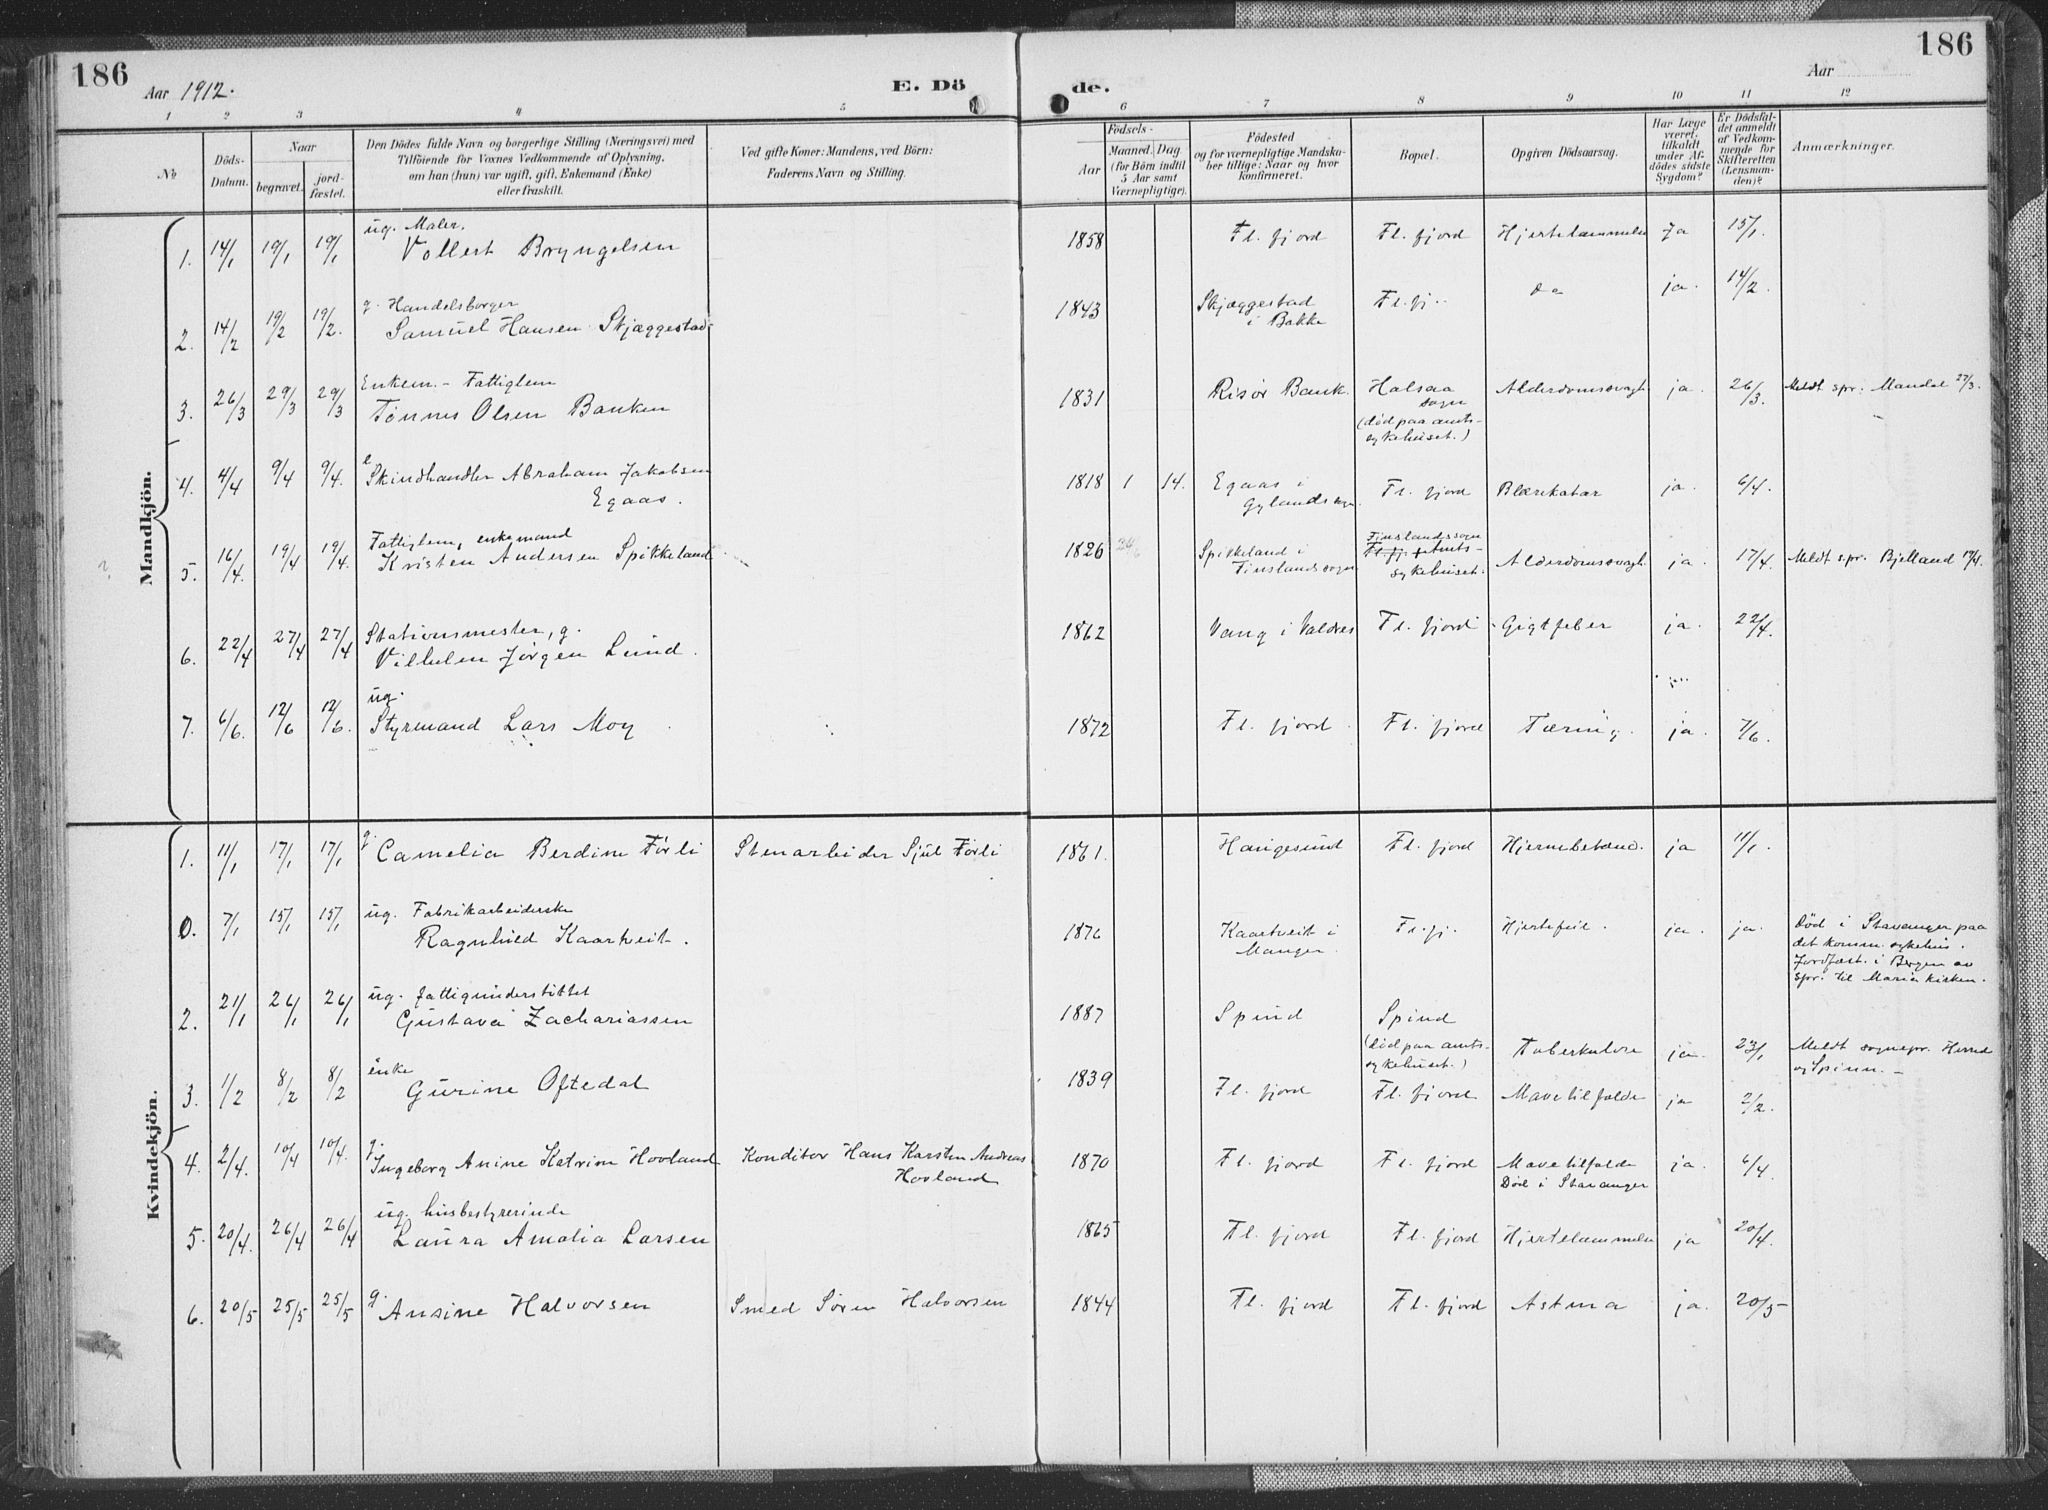 186
Aar 1912.
E. Dö
de.
Aar
186
1 2 3 4 5 6 7 8 9 10 11 12
No
Döds-Datum.
Naar
begravet.
jord-fæstet.
Den Dödes fulde Navn og borgerlige Stilling (Næringsvei) med
Tilföiende for Voxnes Vedkommende af Oplysning,
om han (hun) var ugift, gift, Enkemand (Enke)
eller fraskilt.
Ved gifte Koner: Mandens, ved Börn:
Faderens Navn og Stilling.
Födsels-
Aar
Maaned. Dag
(for Börn indtil
5 Aar samt
Værnepligtige).
Födested
og for værnepligtige Mandska-
ber tillige: Naar og hvor
konfirmeret.
Bopæl.
Opgiven Dödsaarsag.
Har Læge
været
tilkaldt
under Af-
dödes sidste
Sygdom?
Er Dödsfal-
det anmeldt
af Vedkom-
mende for
Skifteretten
(Lensman-
den)?
Anmærkninger.
Mandkjön.
ug. Maler.
1. 14/1 19/1 19/1 Vollert Bryngelsen 1858 Fl. fjord Fl. fjord Hjertelammelse Ja 15/1
g. Handelsborger
2. 14/2 19/2 19/2. Samuel Hansen Skjæggestad 1843 Skjæggestad Fl. fj. Do ja. 14/2.
i Bakke
Enkem. - Fattiglem
3. 26/3 29/3 29/3 Tønnes Olsen Banken 1831 Risør Bank. Halsaa Alderdomssvagh. ja. 26/3. Meldt spr. Mandal 27/3.
sogn
(død paa amts-
sykehuset.)
e
4. 4/4 9/4 9/4. Skindhandler Abraham Jakobsen 1818 1 14. Egaas i Fl. fjord Blærekatar ja. 6/4.
Egaas. Gylandsogn.
Fattiglem, enkemand Finslandssogn
5. 16/4. 19/4 19/4. Kristen Andersen Spikkeland 1826 24/6 Spikkeland i Fl. fj. Amts- Alderdomssvagh. ja. 17/4. Meldt spr. Bjelland 17/4.
Finslandssogn sykehuset.
Stationsmester, g.
6. 22/4 27/4 27/4 Vilhelm Jørgen Lund. 1862 Vang i Valdres Fl. fjord Gigtfeber ja. 22/4.
ug.
7. 6/6. 12/6 12/6. Styrmand Lars Moy 1872 Fl. fjord. Fl. fjord Tæring. ja. 7/6.
Kvindekjön.
1. 11/1 17/1 17/1 g. Camelia Berdine Førli Stenarbeider Sjul Førli 1861. Haugesund Fl. fjord Hjernebetænd. ja 11/1.
ug. Fabrikarbeiderske
0. 7/1 15/1 15/1 Ragnhild Kaartveit. 1876 Kaartveit i Fl. fj. Hjertefeil. ja. ja. Død i Stavanger paa
Manger. det komm. sykehus.
Jordfæst. i Bergen av
spr. til Mariakirken.
ug. fattigunderstøttet
2. 21/1 26/1 26/1 Gustava Zachariassen 1887 Spind Spind
(død paa amts- Tuberkulose ja. 23/1 Meldt sognepr. Herred
sykehuset.) og Spinn. -
enke
3. 1/2 8/2 8/2 Gurine Oftedal 1839 Fl. fjord Fl. fjord Mavetilfælde ja 2/2.
g.
4. 2/4. 10/4 10/4. Ingeborg Anine Katrine Hovland Konditor Hans Karsten Andreas 1870 Fl. fjord Fl. fjord Mavetilfælde ja. 6/4
Hovland Død i Stavanger
ug. husbestyrerinde
5. 20/4. 26/4 26/4 Laura Amalia Larsen 1865 Fl. fjord Fl. fjord Hjertelammelse ja 20/4.
6. 20/5 25/5 25/5 g. Ansine Halvorsen Smed Søren Halvorsen 1844 Fl. fjord Fl. fjord Astma ja. 20/5